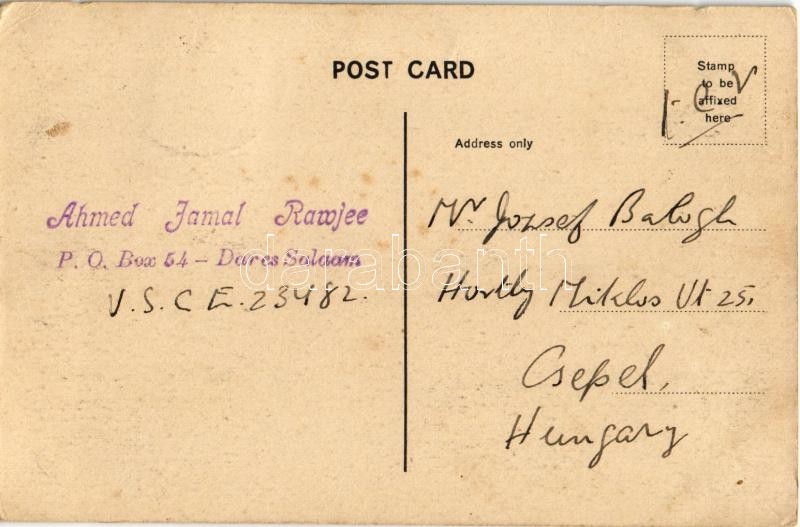 POST CARD
Stamp
to be
affixed
here
T.C.V
Address only
Ahmed Jamal Rawjee
P. O. Box 54 – Dares Salaam
V.S.C E. 23482.
Mr Jozsef Balogh
Horthy Miklos Ut 25.
Csepel,
Hungary
darabanth